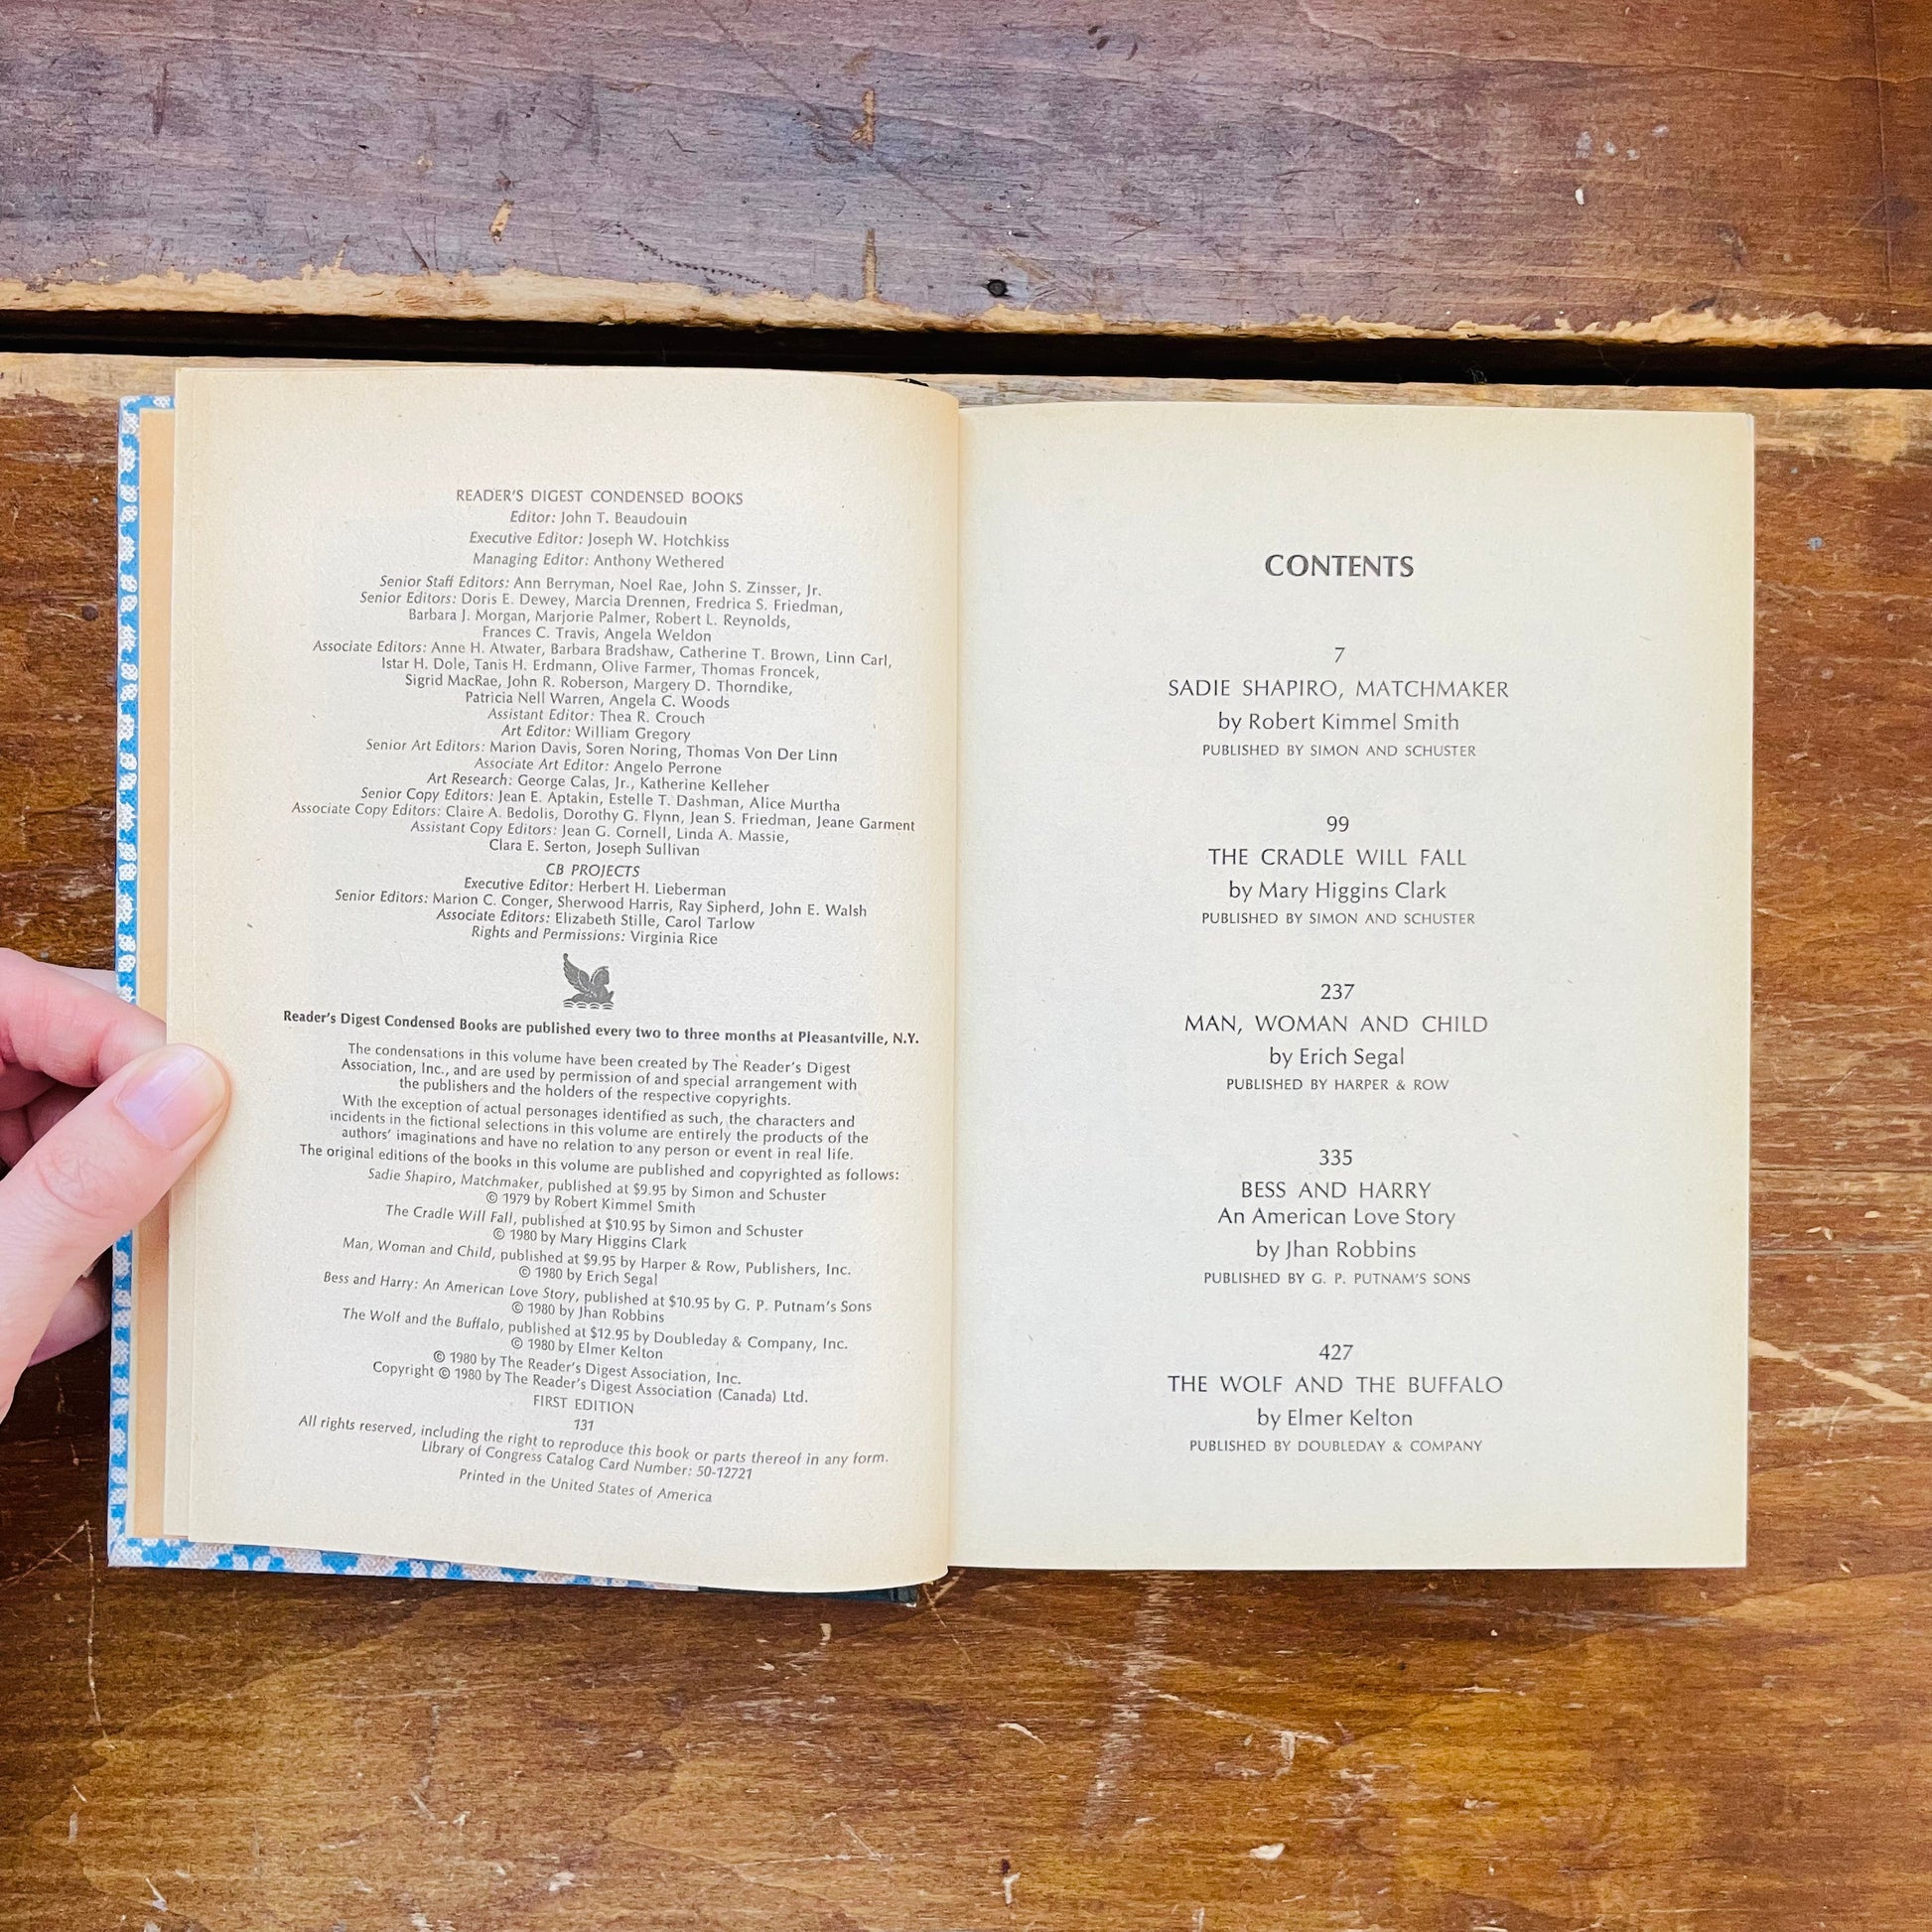 READER'S DIGEST CONDENSED BOOKS
Editor: John T. Beaudouin
Executive Editor: Joseph W. Hotchkiss
Managing Editor: Anthony Wethered
Senior Staff Editors: Ann Berryman, Noel Rae, John S. Zinsser, Jr.
Senior Editors: Doris E. Dewey, Marcia Drennen, Fredrica S. Friedman,
Barbara J. Morgan, Marjorie Palmer, Robert L. Reynolds,
Frances C. Travis, Angela Weldon
Associate Editors: Anne H. Atwater, Barbara Bradshaw, Catherine T. Brown, Linn Carl,
Istar H. Dole, Tanis H. Erdmann, Olive Farmer, Thomas Froncek,
Sigrid MacRae, John R. Roberson, Margery D. Thorndike,
Patricia Nell Warren, Angela C. Woods
Assistant Editor: Thea R. Crouch
Art Editor: William Gregory
Senior Art Editors: Marion Davis, Soren Noring, Thomas Von Der Linn
Associate Art Editor: Angelo Perrone
Art Research: George Calas, Jr., Katherine Kelleher
Senior Copy Editors: Jean E. Aptakin, Estelle T. Dashman, Alice Murtha
Associate Copy Editors: Claire A. Bedolis, Dorothy G. Flynn, Jean S. Friedman, Jeane Garment
Assistant Copy Editors: Jean G. Cornell, Linda A. Massie,
Clara E. Serton, Joseph Sullivan
CB PROJECTS
Executive Editor: Herbert H. Lieberman
Senior Editors: Marion C. Conger, Sherwood Harris, Ray Sipherd, John E. Walsh
Associate Editors: Elizabeth Stille, Carol Tarlow
Rights and Permissions: Virginia Rice
Reader's Digest Condensed Books are published every two to three months at Pleasantville, N.Y.
The condensations in this volume have been created by The Reader's Digest
Association, Inc., and are used by permission of and special arrangement with
the publishers and the holders of the respective copyrights.
With the exception of actual personages identified as such, the characters and
incidents in the fictional selections in this volume are entirely the products of the
authors' imaginations and have no relation to any person or event in real life.
The original editions of the books in this volume are published and copyrighted as follows:
Sadie Shapiro, Matchmaker, published at $9.95 by Simon and Schuster
© 1979 by Robert Kimmel Smith
The Cradle Will Fall, published at $10.95 by Simon and Schuster
© 1980 by Mary Higgins Clark
Man, Woman and Child, published at $9.95 by Harper & Row, Publishers, Inc.
© 1980 by Erich Segal
Bess and Harry: An American Love Story, published at $10.95 by G. P. Putnam's Sons
© 1980 by Jhan Robbins
The Wolf and the Buffalo, published at $12.95 by Doubleday & Company, Inc.
© 1980 by Elmer Kelton
© 1980 by The Reader's Digest Association, Inc.
Copyright © 1980 by The Reader's Digest Association (Canada) Ltd.
FIRST EDITION
131
All rights reserved, including the right to reproduce this book or parts thereof in any form.
Library of Congress Catalog Card Number: 50-12721
Printed in the United States of America
CONTENTS
7
SADIE SHAPIRO, MATCHMAKER
by Robert Kimmel Smith
PUBLISHED BY SIMON AND SCHUSTER
99
THE CRADLE WILL FALL
by Mary Higgins Clark
PUBLISHED BY SIMON AND SCHUSTER
237
MAN, WOMAN AND CHILD
by Erich Segal
PUBLISHED BY HARPER & ROW
335
BESS AND HARRY
An American Love Story
by Jhan Robbins
PUBLISHED BY G. P. PUTNAM'S SONS
427
THE WOLF AND THE BUFFALO
by Elmer Kelton
PUBLISHED BY DOUBLEDAY & COMPANY